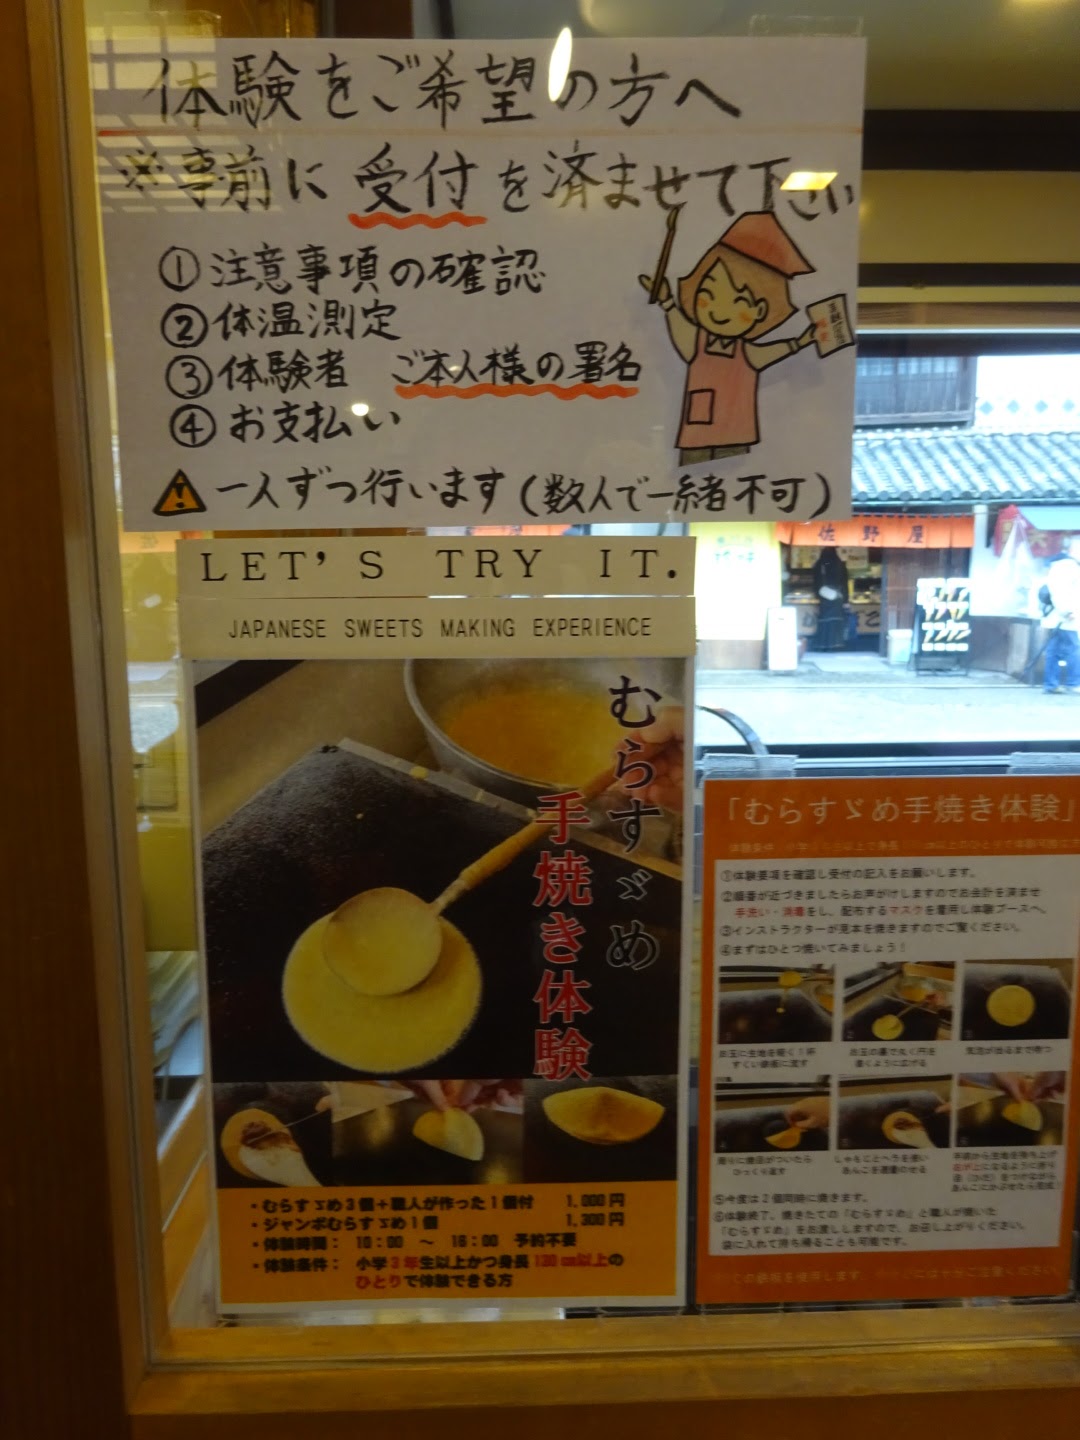 体験をご希望の方へ
※事前に受付を済ませて下さい
①注意事項の確認
②体温測定
③体験者 ご本人様の署名
④お支払い
一人ずつ行います(数人で一緒不可)
LET'S TRY IT.
JAPANESE SWEETS MAKING EXPERIENCE
むらすゞめ
手焼き体験
・むらすゞめ3個+職人が作った1個付 1,000円
・ジャンボむらすゞめ1個 1,300円
・体験時間： 10：00 ～ 16：00 予約不要
・体験条件： 小学3年生以上かつ身長130cm以上の
ひとりで体験できる方
佐野屋
「むらすゞめ手焼き体験」
①体験要項を確認し受付の記入をお願いします。
②順番が近づきましたらお声がけしますのでお会計を済ませ
手洗い・消毒をし、配布するマスクを着用し体験ブースへ。
③インストラクターが見本を焼きますのでご覧ください。
④まずはひとつ焼いてみましょう！
お玉に生地を軽く1杯
すくい鉄板に流す
お玉の裏で丸く円を
描くように広げる
気泡が出るまで待つ
周りに焼目がついたら
ひっくり返す
しゃもじとヘラを使い
あんこを適量のせる
手前から生地を持ち上げ
⑤今度は2個同時に焼きます。
⑥体験終了、焼きたての「むらすゞめ」と職人が焼いた
「むらすゞめ」をお渡ししますので、お召し上がりください。
袋に入れて持ち帰ることも可能です。